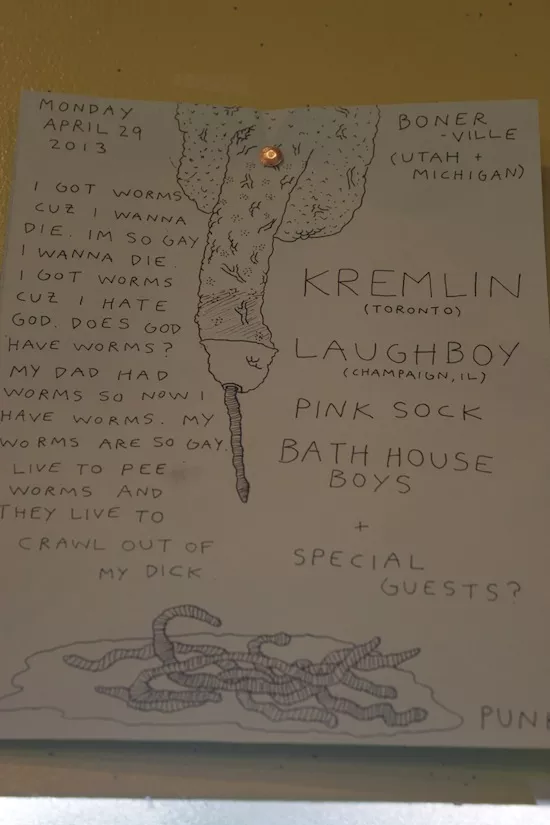 MONDAY
APRIL 29
2013
I GOT WORMS
CUZ I WANNA
DIE. IM SO GAY
I WANNA DIE.
I GOT WORMS
CUZ I HATE
GOD. DOES GOD
HAVE WORMS?
MY DAD HAD
WORMS SO NOW I
HAVE WORMS. MY
WORMS ARE SO GAY.
LIVE TO PEE
WORMS AND
THEY LIVE TO
CRAWL OUT OF
MY DICK
BONER
-VILLE
(UTAH +
MICHIGAN)
KREMLIN
(TORONTO)
LAUGHBOY
(CHAMPAIGN, IL)
PINK SOCK
BATH HOUSE
BOYS
+
SPECIAL
GUESTS?